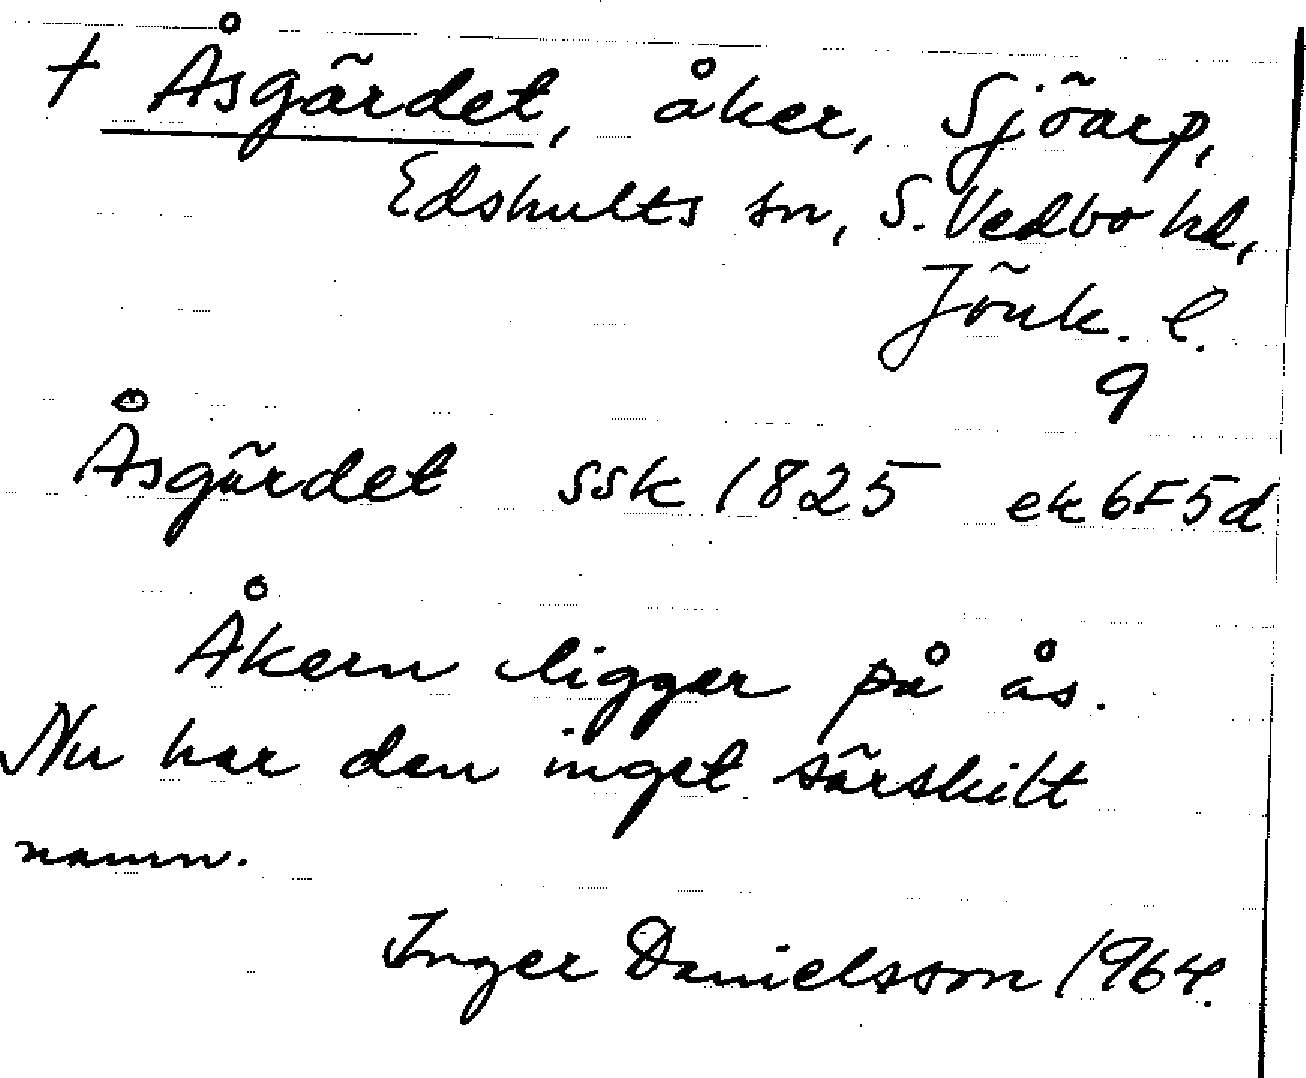 † Åsgärdet, åker, Sjöarp,
Edshults sn, S. Vedbo hd,
Jönk. l.
9
Åsgärdet ssk 1825 ek 6F5d
Åkern ligger på ås.
Nu har den inget särskilt
namn.
Inger Danielsson 1964.